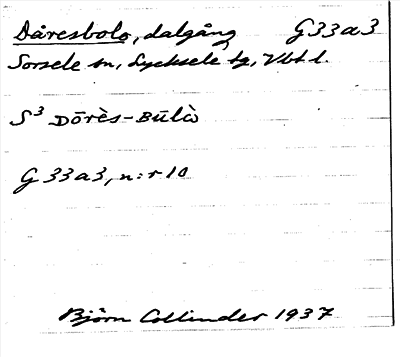 Dåresbolo, dalgång G33a3
Sorsele sn, Lycksele tg, Vbt l.
S³ Dōrès-Būlò
G 33a3, n:r 10
Björn Collinder 1937